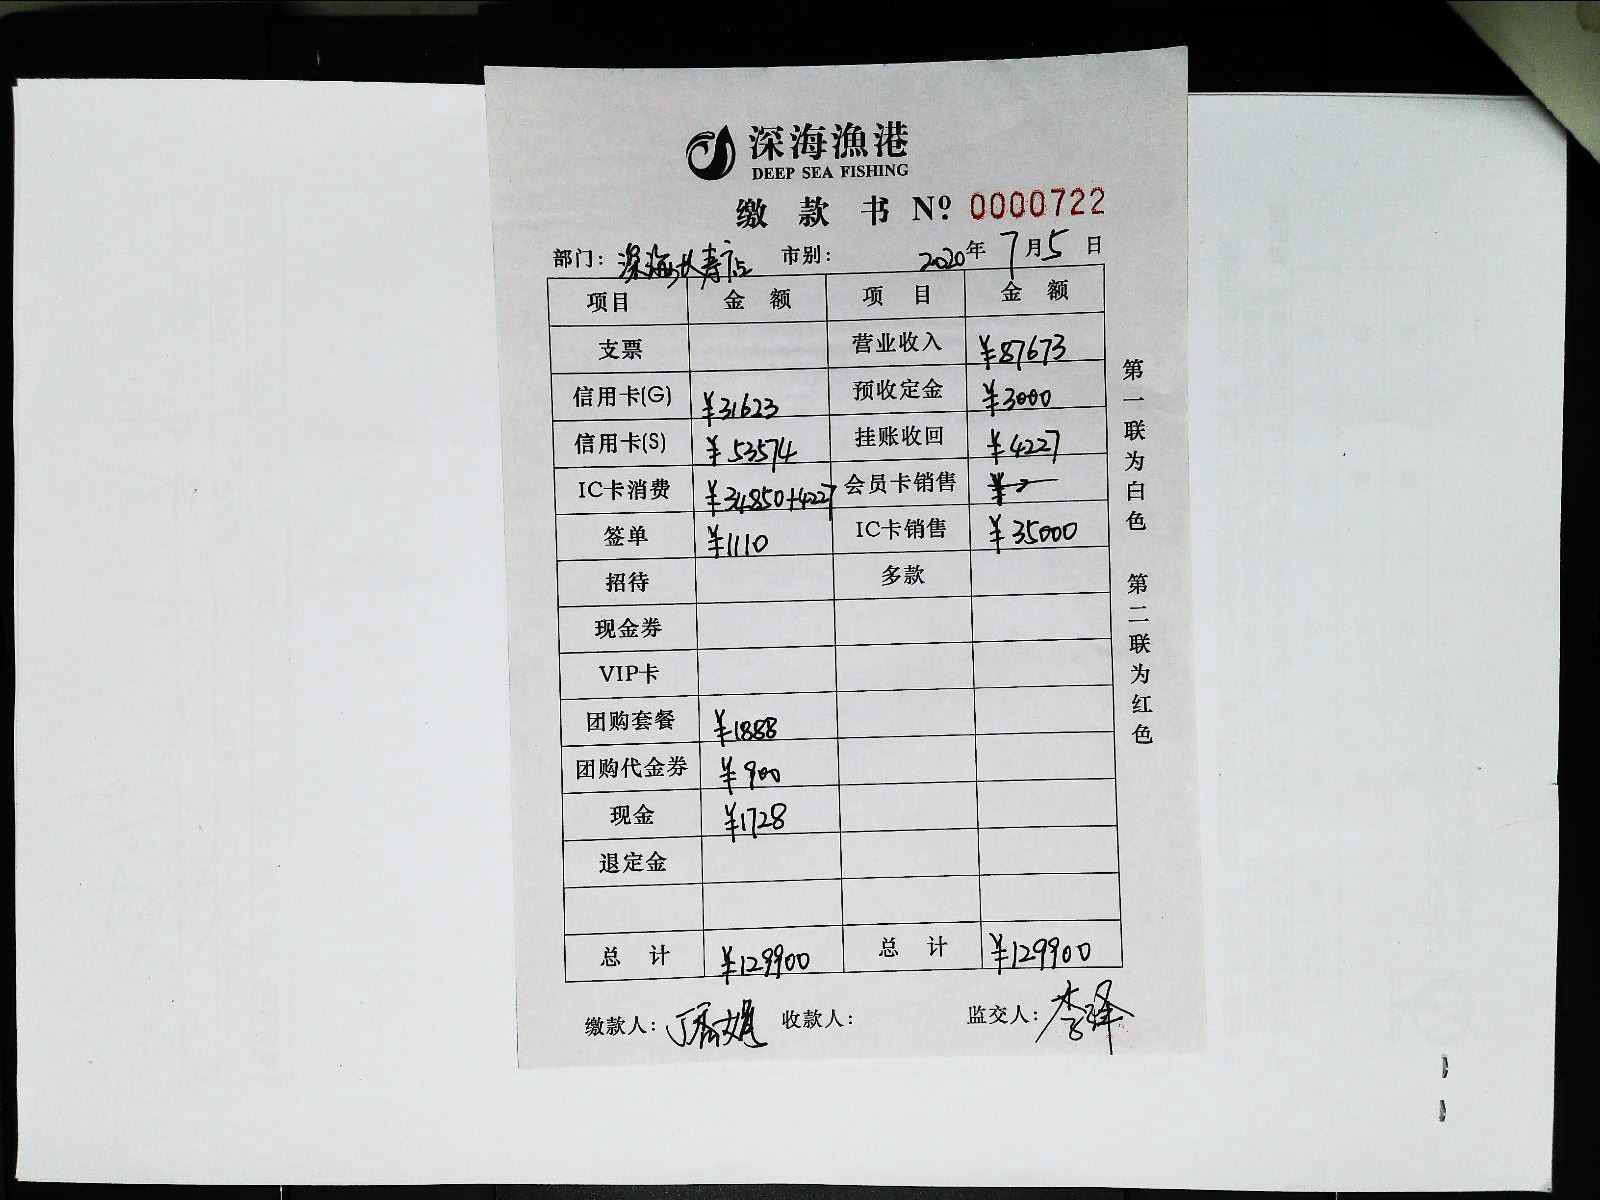 深海漁港
DEEP SEA FISHING
缴款书 Nº 0000722
部门：深海长寿店 市别： 2020年7月5日
项目 金额 项目 金额
支票 营业收入 ¥87673
信用卡(G) ¥31623 预收定金 ¥3000
信用卡(S) ¥53574 挂账收回 ¥4227
IC卡消费 ¥34850+4227 会员卡销售
签单 ¥1110 IC卡销售 ¥35000
招待 多款
现金券
VIP卡
团购套餐 ¥1888
团购代金券 ¥900
现金 ¥1728
退定金
总计 ¥129900 总计 ¥129900
缴款人： 收款人： 监交人：李
第一联为白色 第二联为红色